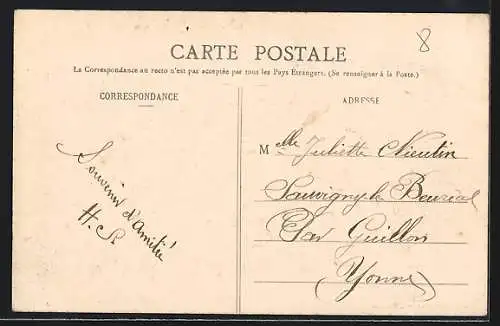 8
CARTE POSTALE
La Correspondance au recto n'est pas acceptée par tous les Pays Étrangers. (Se renseigner à la Poste.)
CORRESPONDANCE
Souvenir d'amitié
H. S
ADRESSE
Melle Juliette Nieutin
Sauvigny-le Beuréal
Par Guillon
(Yonne)